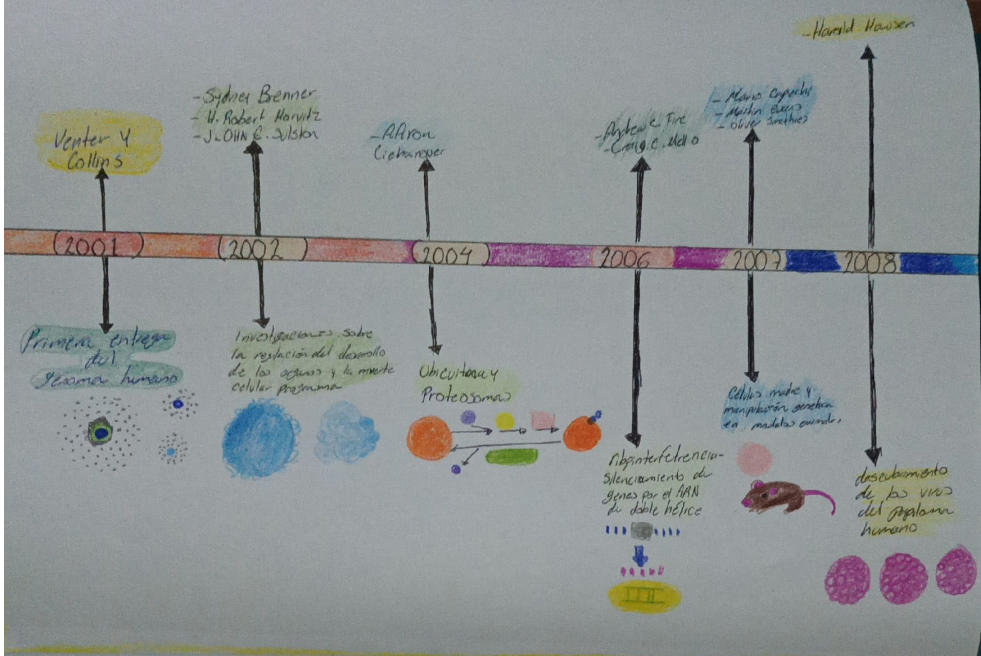 - Harald Hausen
- Sydney Brenner
- H. Robert Horvitz
- J. OHN E. Sulston
Venter y
Collins
- AAron
Ciehanover
- Andew C Fire
- Craig. C. Mello
- Mario Capechi
- Martin Evans
- Oliver Smithies
2001
2002
2004
2006
2007
2008
Primera entrega
del
genoma humano
Investigaciones sobre
la regulación del desarrollo
de los organos y la muerte
celular programa
Ubicuitina y
Proteosomas
ribointerferencia-
Silenciamiento de
genes por el ARN
de doble hélice
Células madre y
manipulación genetica
en modelos animales
descubrimiento
de los virus
del papiloma
humano